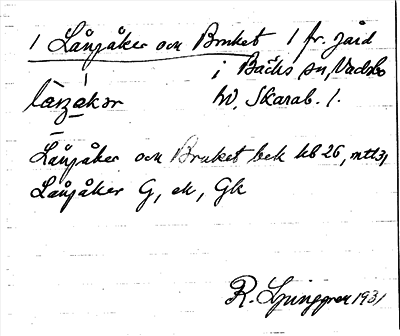 1 Långåker och Bruket 1 fr. gård
i Bäcks sn, Vadsbo
hd, Skarab. l.
Långåker och Bruket bek hb 26, mtl 3,
Långåker G, ek, Gk
R. Ljunggren 1931